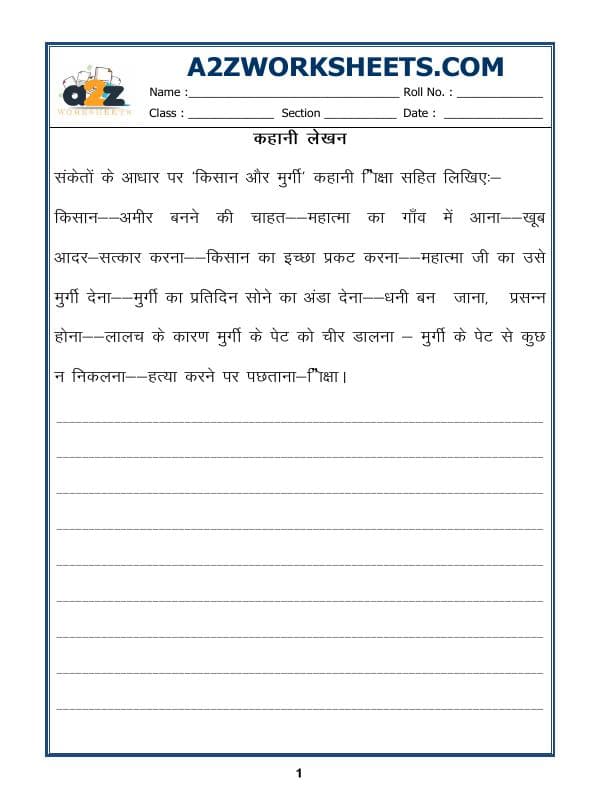 A2ZWORKSHEETS.COM
a2z
WORKSHEETS
Name :____________________ Roll No. : ____________
Class : ____________ Section __________ Date : ____________
कहानी लेखन
संकेतों के आधार पर 'किसान और मुर्गी' कहानी शिक्षा सहित लिखिए:–
किसान––अमीर बनने की चाहत––महात्मा का गाँव में आना––खूब
आदर–सत्कार करना––किसान का इच्छा प्रकट करना––महात्मा जी का उसे
मुर्गी देना––मुर्गी का प्रतिदिन सोने का अंडा देना––धनी बन जाना, प्रसन्न
होना––लालच के कारण मुर्गी के पेट को चीर डालना – मुर्गी के पेट से कुछ
न निकलना––हत्या करने पर पछताना–शिक्षा।
1